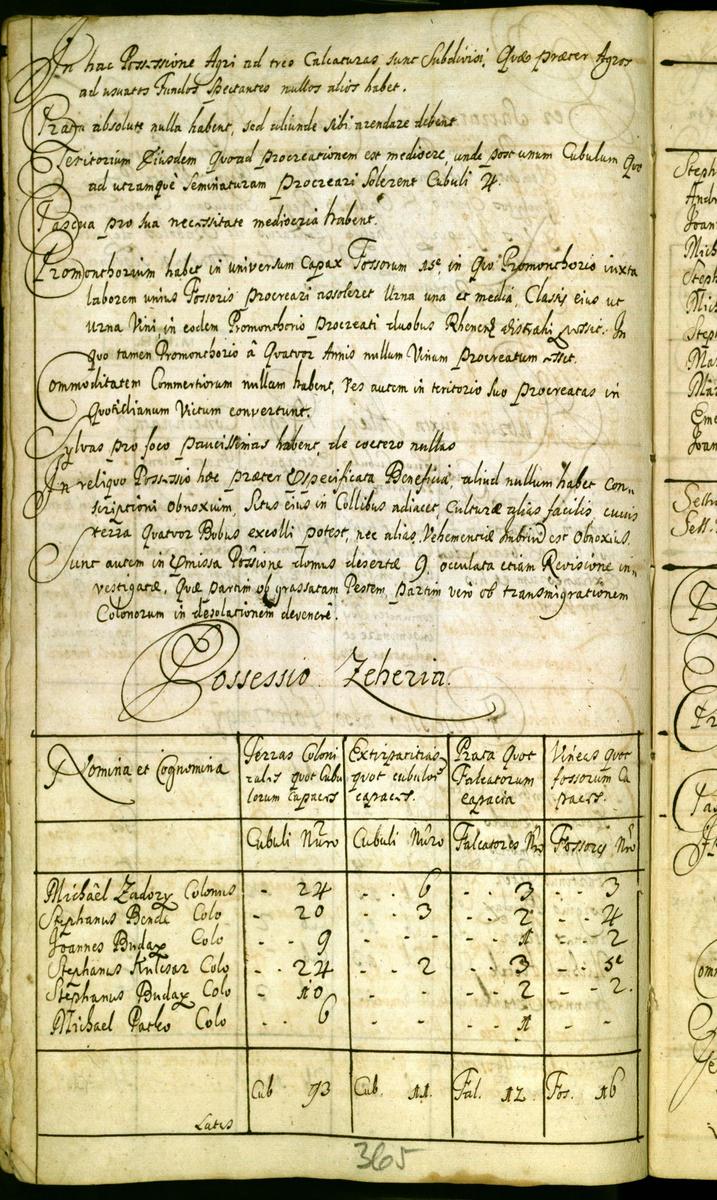 In hac Possessione Agri ad tres Calcaturas sunt Subdivisi, Quae praeter Agros
ad usuatos Fundos Spectantes nullos alios habet.
Prata absolute nulla habent, sed aliunde sibi arendare debent
Teritorium Eiusdem quoad procreationem est mediocre, unde post unum Cubulum
ad utramque Seminaturam procreari solerent Cubuli 4.
Pascua pro sua necessitate mediocria habent.
Promonthorium habet in universum Capax Fossorum 15, in Quo Promonthorio iuxta
laborem unius Fossoris procreari assoleret Urna una et media, Classis eius ut
Urna Vini in eodem Promonthorio procreati duobus Rhenen distrahi posset. In
quo tamen Promonthorio â Quatvor Annis nullum Vinum procreatum esset.
Commoditatem Commertiorum nullam habent, res autem in teritorio suo procreatas in
Quotidianum Victum convertunt.
Sylvas pro foco paucissimas habent, de coetero nullas
In reliquo Possessio haec praeter Specificata Beneficia, aliud nullum habet con„
scriptioni obnoxium, Situs eius in Collibus adiacet, Culturae alias facilis cuius
terra Quatvor Bobus excolli potest, nec alias Vehementiae obnoxius.
Sunt autem in Possione domus desertae 9. occulata etiam Revisione in„
vestigatae, Quae partim ob grassatam Pestem, partim vero ob transmigrationem
Colonorum in desolationem devenere.
Possessio Zeheria.
Nomina et Cognomina Terras Coloni Extirpatitias Prata Quot Vineas quot
cales quot Cubu quot cubulor Falcatorum fossorum Ca
lorum Capaces capaces. capacia paces.
Cubuli Nũro Cubuli Nũro Falcatores Nro Fossores Nro
Michaël Zadory Colonus - 24 - - 6 - - 3 - - 3
Stephanus Bende Colo - 20 - - 3 - - 2 - - 4
Joannes Buday Colo - - 9 - - - - - 1 - - 2
Stephanus Kulcsar Colo - - 24 - - 2 - - 3 - - 5
Stephanus Buday Colo - 10 - - - - - 2 - - 2.
Michael Patko Colo - - 6 - - - - - 1 - -
Cub 93 Cub. 11. Fal. 12. Fos. 16
Latus
365